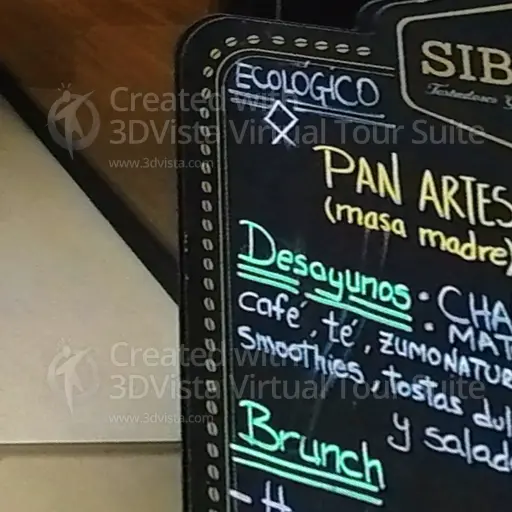 ECOLÓGICO
SIB
PAN ARTES
(masa madre)
Desayunos · CHA
· MAT
café, té, ZUMO NATUR
Smoothies, tostas dul
y salad
Brunch
- H
Created with
3DVista Virtual Tour Suite
www.3dvista.com
Created with
3DVista Virtual Tour Suite
www.3dvista.com